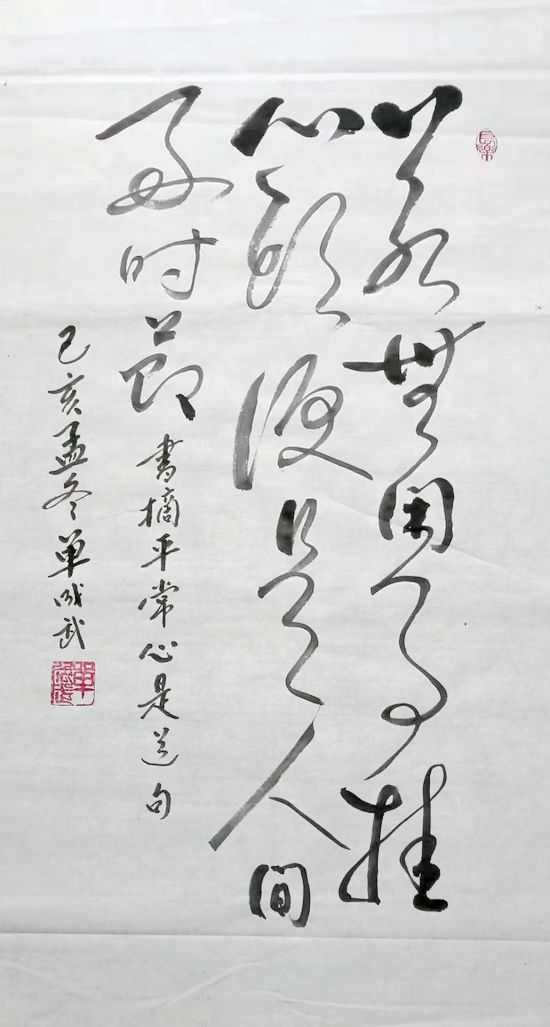 若無闲事挂
心頭便是人間
好时节
書摘平常心是道句
己亥孟冬单成武
長樂